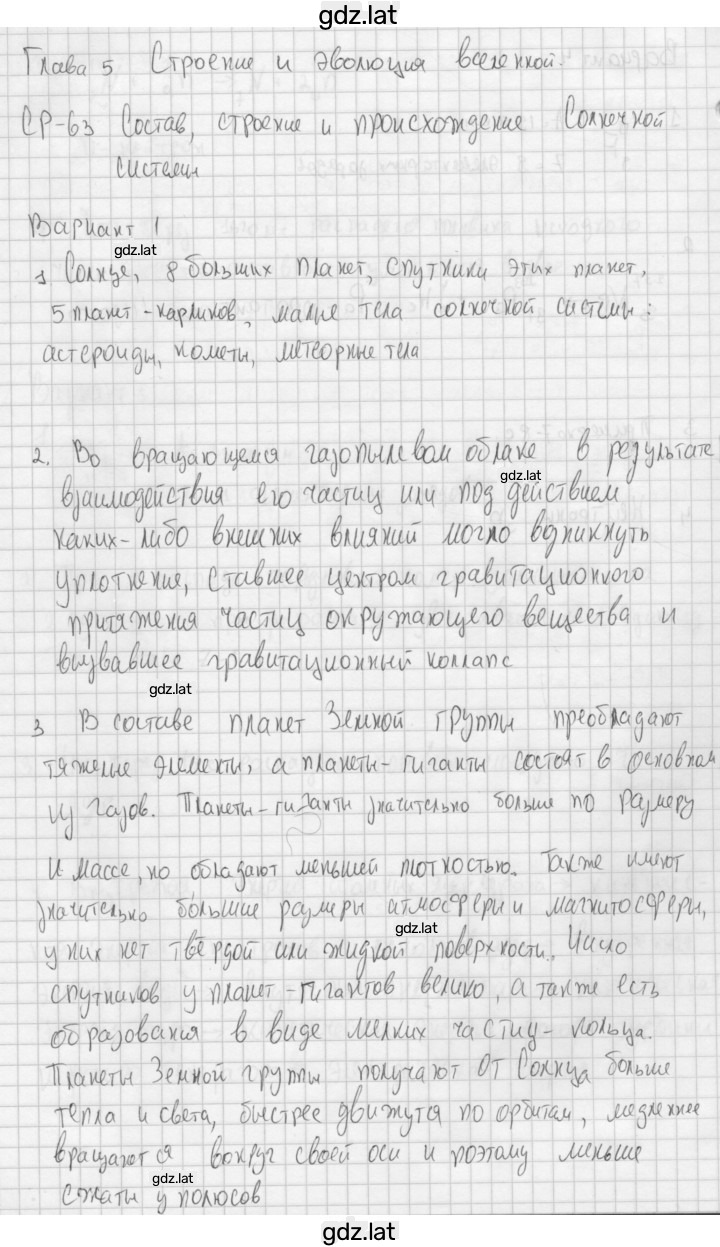 gdz.lat
Глава 5 Строение и эволюция вселенной.
СР-63 Состав, строение и происхождение Солнечной
системы
Вариант 1
gdz.lat
1 Солнце, 8 больших планет, спутники этих планет,
5 планет-карликов, малые тела солнечной системы:
астероиды, кометы, метеорные тела
2. Во вращающемся газопылевом облаке в результате
gdz.lat
взаимодействия его частиц или под действием
каких-либо внешних влияний могло возникнуть
уплотнение, ставшее центром гравитационного
притяжения частиц окружающего вещества и
вызвавшее гравитационный коллапс
gdz.lat
3 В составе планет Земной группы преобладают
тяжелые элементы, а планеты-гиганты состоят в основном
из газов. Планеты-гиганты значительно больше по размеру
и массе, но обладают меньшей плотностью. Также имеют
значительно большие размеры атмосферы и магнитосферы,
gdz.lat
у них нет твёрдой или жидкой поверхности. Число
спутников у планет-гигантов велико, а также есть
образования в виде мелких частиц - кольца.
Планеты Земной группы получают от Солнца больше
тепла и света, быстрее движутся по орбитам, медленнее
вращаются вокруг своей оси и поэтому меньше
gdz.lat
сжаты у полюсов
gdz.lat